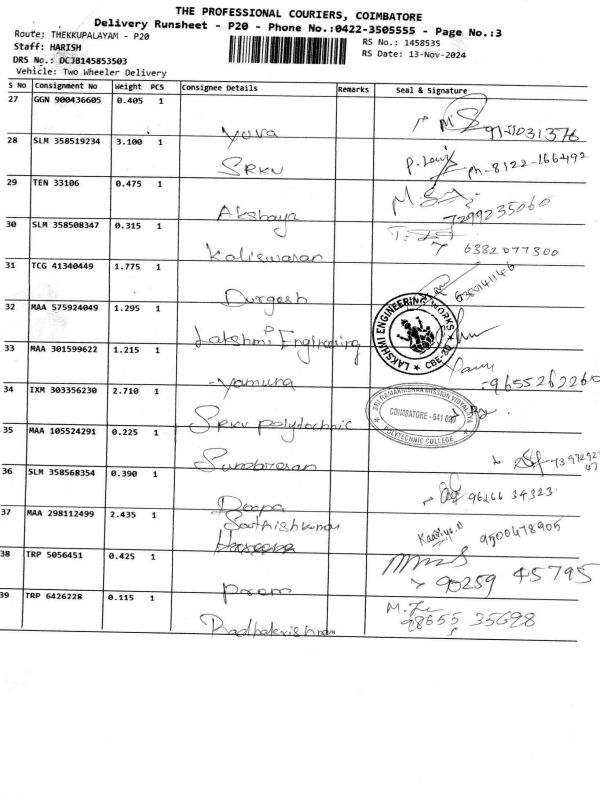 THE PROFESSIONAL COURIERS, COIMBATORE
Delivery Runsheet - P20 - Phone No.:0422-3505555 - Page No.:3
Route: THEKKUPALAYAM - P20
Staff: HARISH
DRS No.: DCJB145853503
Vehicle: Two Wheeler Delivery
RS No.: 1458535
RS Date: 13-Nov-2024
S No Consignment No Weight PCS Consignee Details Remarks Seal & Signature
27 GGN 900436605 0.405 1
Yuva
28 SLM 358519234 3.100 1
SRKV Ph-8122-166492
29 TEN 33106 0.475 1
Akshaya 7299235060
30 SLM 358508347 0.315 1
Kaliswaran 6382077300
31 TCG 41340449 1.775 1
Durgesh
32 MAA 575924049 1.295 1
Lakshmi Engineering
LAKSHMI ENGINEERING WORKS
33 MAA 301599622 1.215 1
Yamuna 9655262260
34 IXM 303356230 2.710 1
SRKV polytechnic
SRI RAMAKRISHNA MISSION VIDYALAYA
COIMBATORE - 641 020
POLYTECHNIC COLLEGE
35 MAA 105524291 0.225 1
36 SLM 358568354 0.390 1
Deepa 96266 34323
37 MAA 298112499 2.435 1
Sathishkumar 9500478905
38 TRP 5056451 0.425 1
90259 45795
39 TRP 6426228 0.115 1
Radhakrishnan 98655 35698